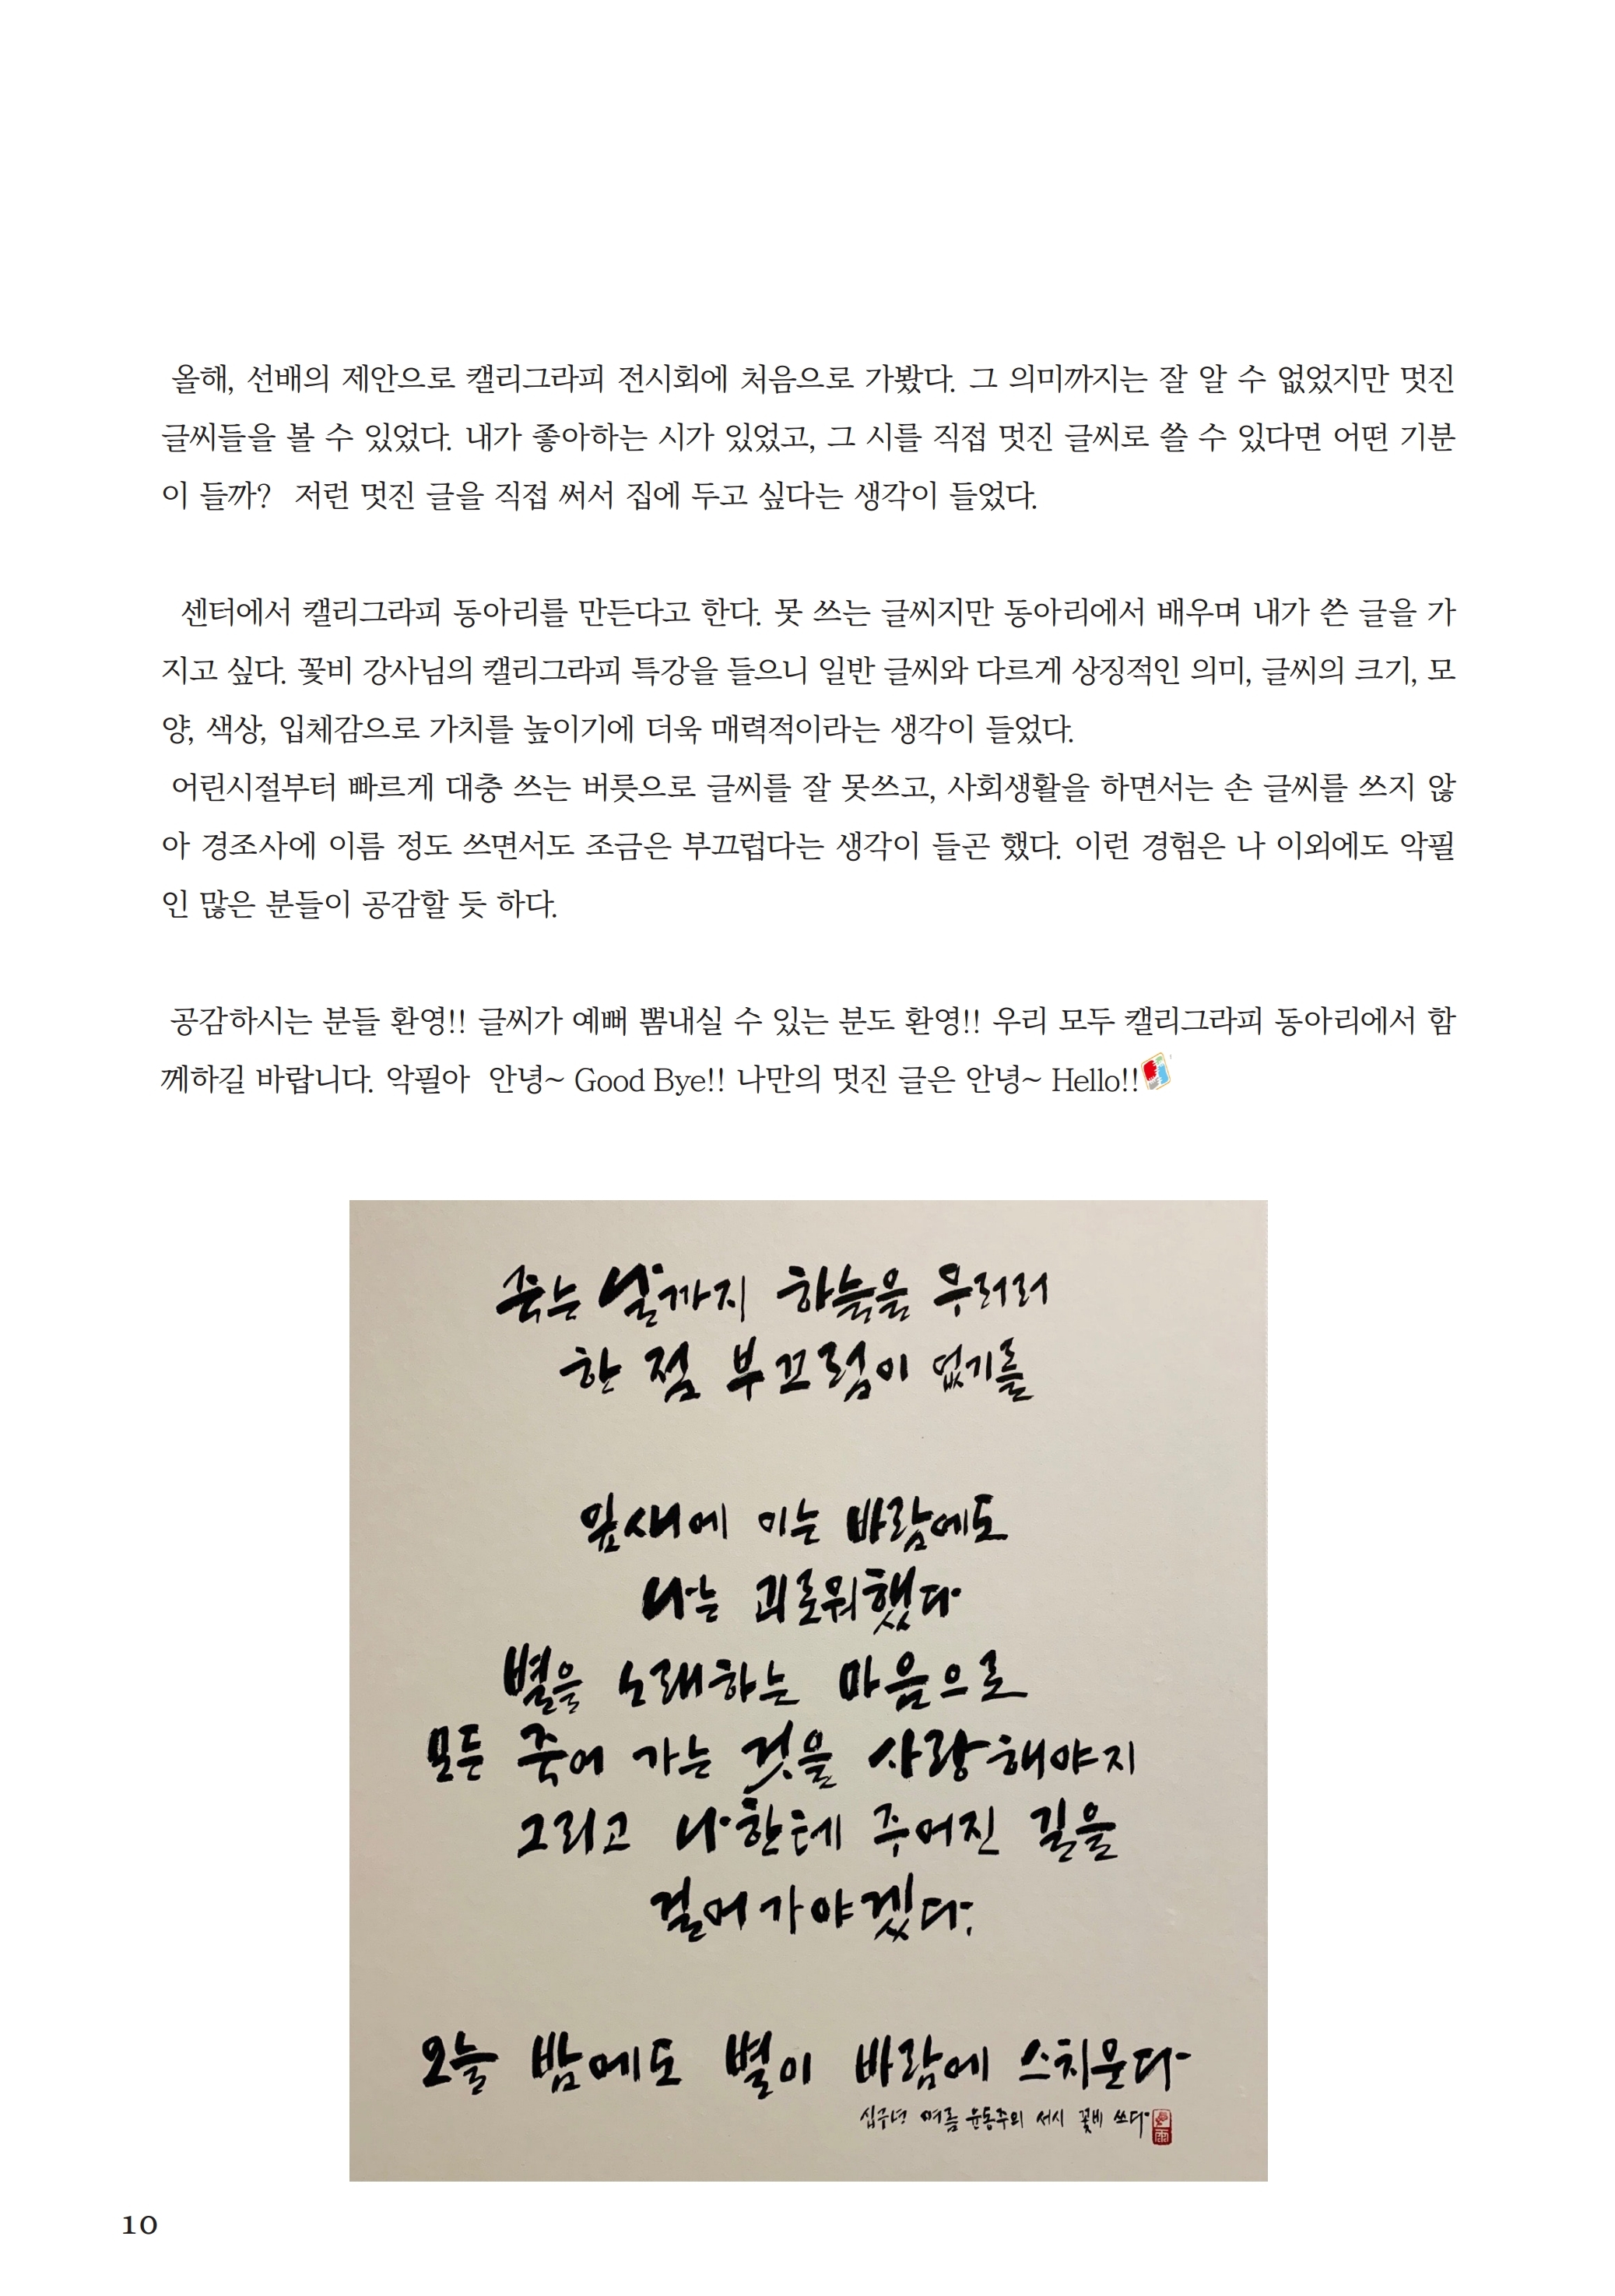 올해, 선배의 제안으로 캘리그라피 전시회에 처음으로 가봤다. 그 의미까지는 잘 알 수 없었지만 멋진
글씨들을 볼 수 있었다. 내가 좋아하는 시가 있었고, 그 시를 직접 멋진 글씨로 쓸 수 있다면 어떤 기분
이 들까? 저런 멋진 글을 직접 써서 집에 두고 싶다는 생각이 들었다.
센터에서 캘리그라피 동아리를 만든다고 한다. 못 쓰는 글씨지만 동아리에서 배우며 내가 쓴 글을 가
지고 싶다. 꽃비 강사님의 캘리그라피 특강을 들으니 일반 글씨와 다르게 상징적인 의미, 글씨의 크기, 모
양, 색상, 입체감으로 가치를 높이기에 더욱 매력적이라는 생각이 들었다.
어린시절부터 빠르게 대충 쓰는 버릇으로 글씨를 잘 못쓰고, 사회생활을 하면서는 손 글씨를 쓰지 않
아 경조사에 이름 정도 쓰면서도 조금은 부끄럽다는 생각이 들곤 했다. 이런 경험은 나 이외에도 악필
인 많은 분들이 공감할 듯 하다.
공감하시는 분들 환영!! 글씨가 예뻐 뽐내실 수 있는 분도 환영!! 우리 모두 캘리그라피 동아리에서 함
께하길 바랍니다. 악필아 안녕~ Good Bye!! 나만의 멋진 글은 안녕~ Hello!!
죽는 날까지 하늘을 우러러
한 점 부끄럼이 없기를
잎새에 이는 바람에도
나는 괴로워했다
별을 노래하는 마음으로
모든 죽어 가는 것을 사랑해야지
그리고 나한테 주어진 길을
걸어가야겠다.
오늘 밤에도 별이 바람에 스치운다
십구년 여름 윤동주의 서시 꽃비 쓰다
10